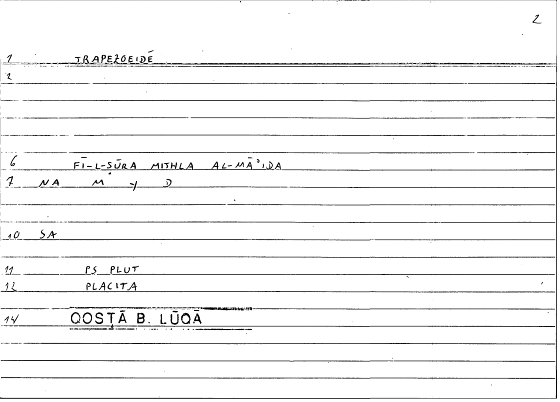 2
1 TRAPEZOEIDĒ
2
6 FĪ-L-ṢŪRA MITHLA AL-MĀʾIDA
7 NA M Y D
10 SA
11 PS PLUT
12 PLACITA
14 QOSṬĀ B. LŪQĀ